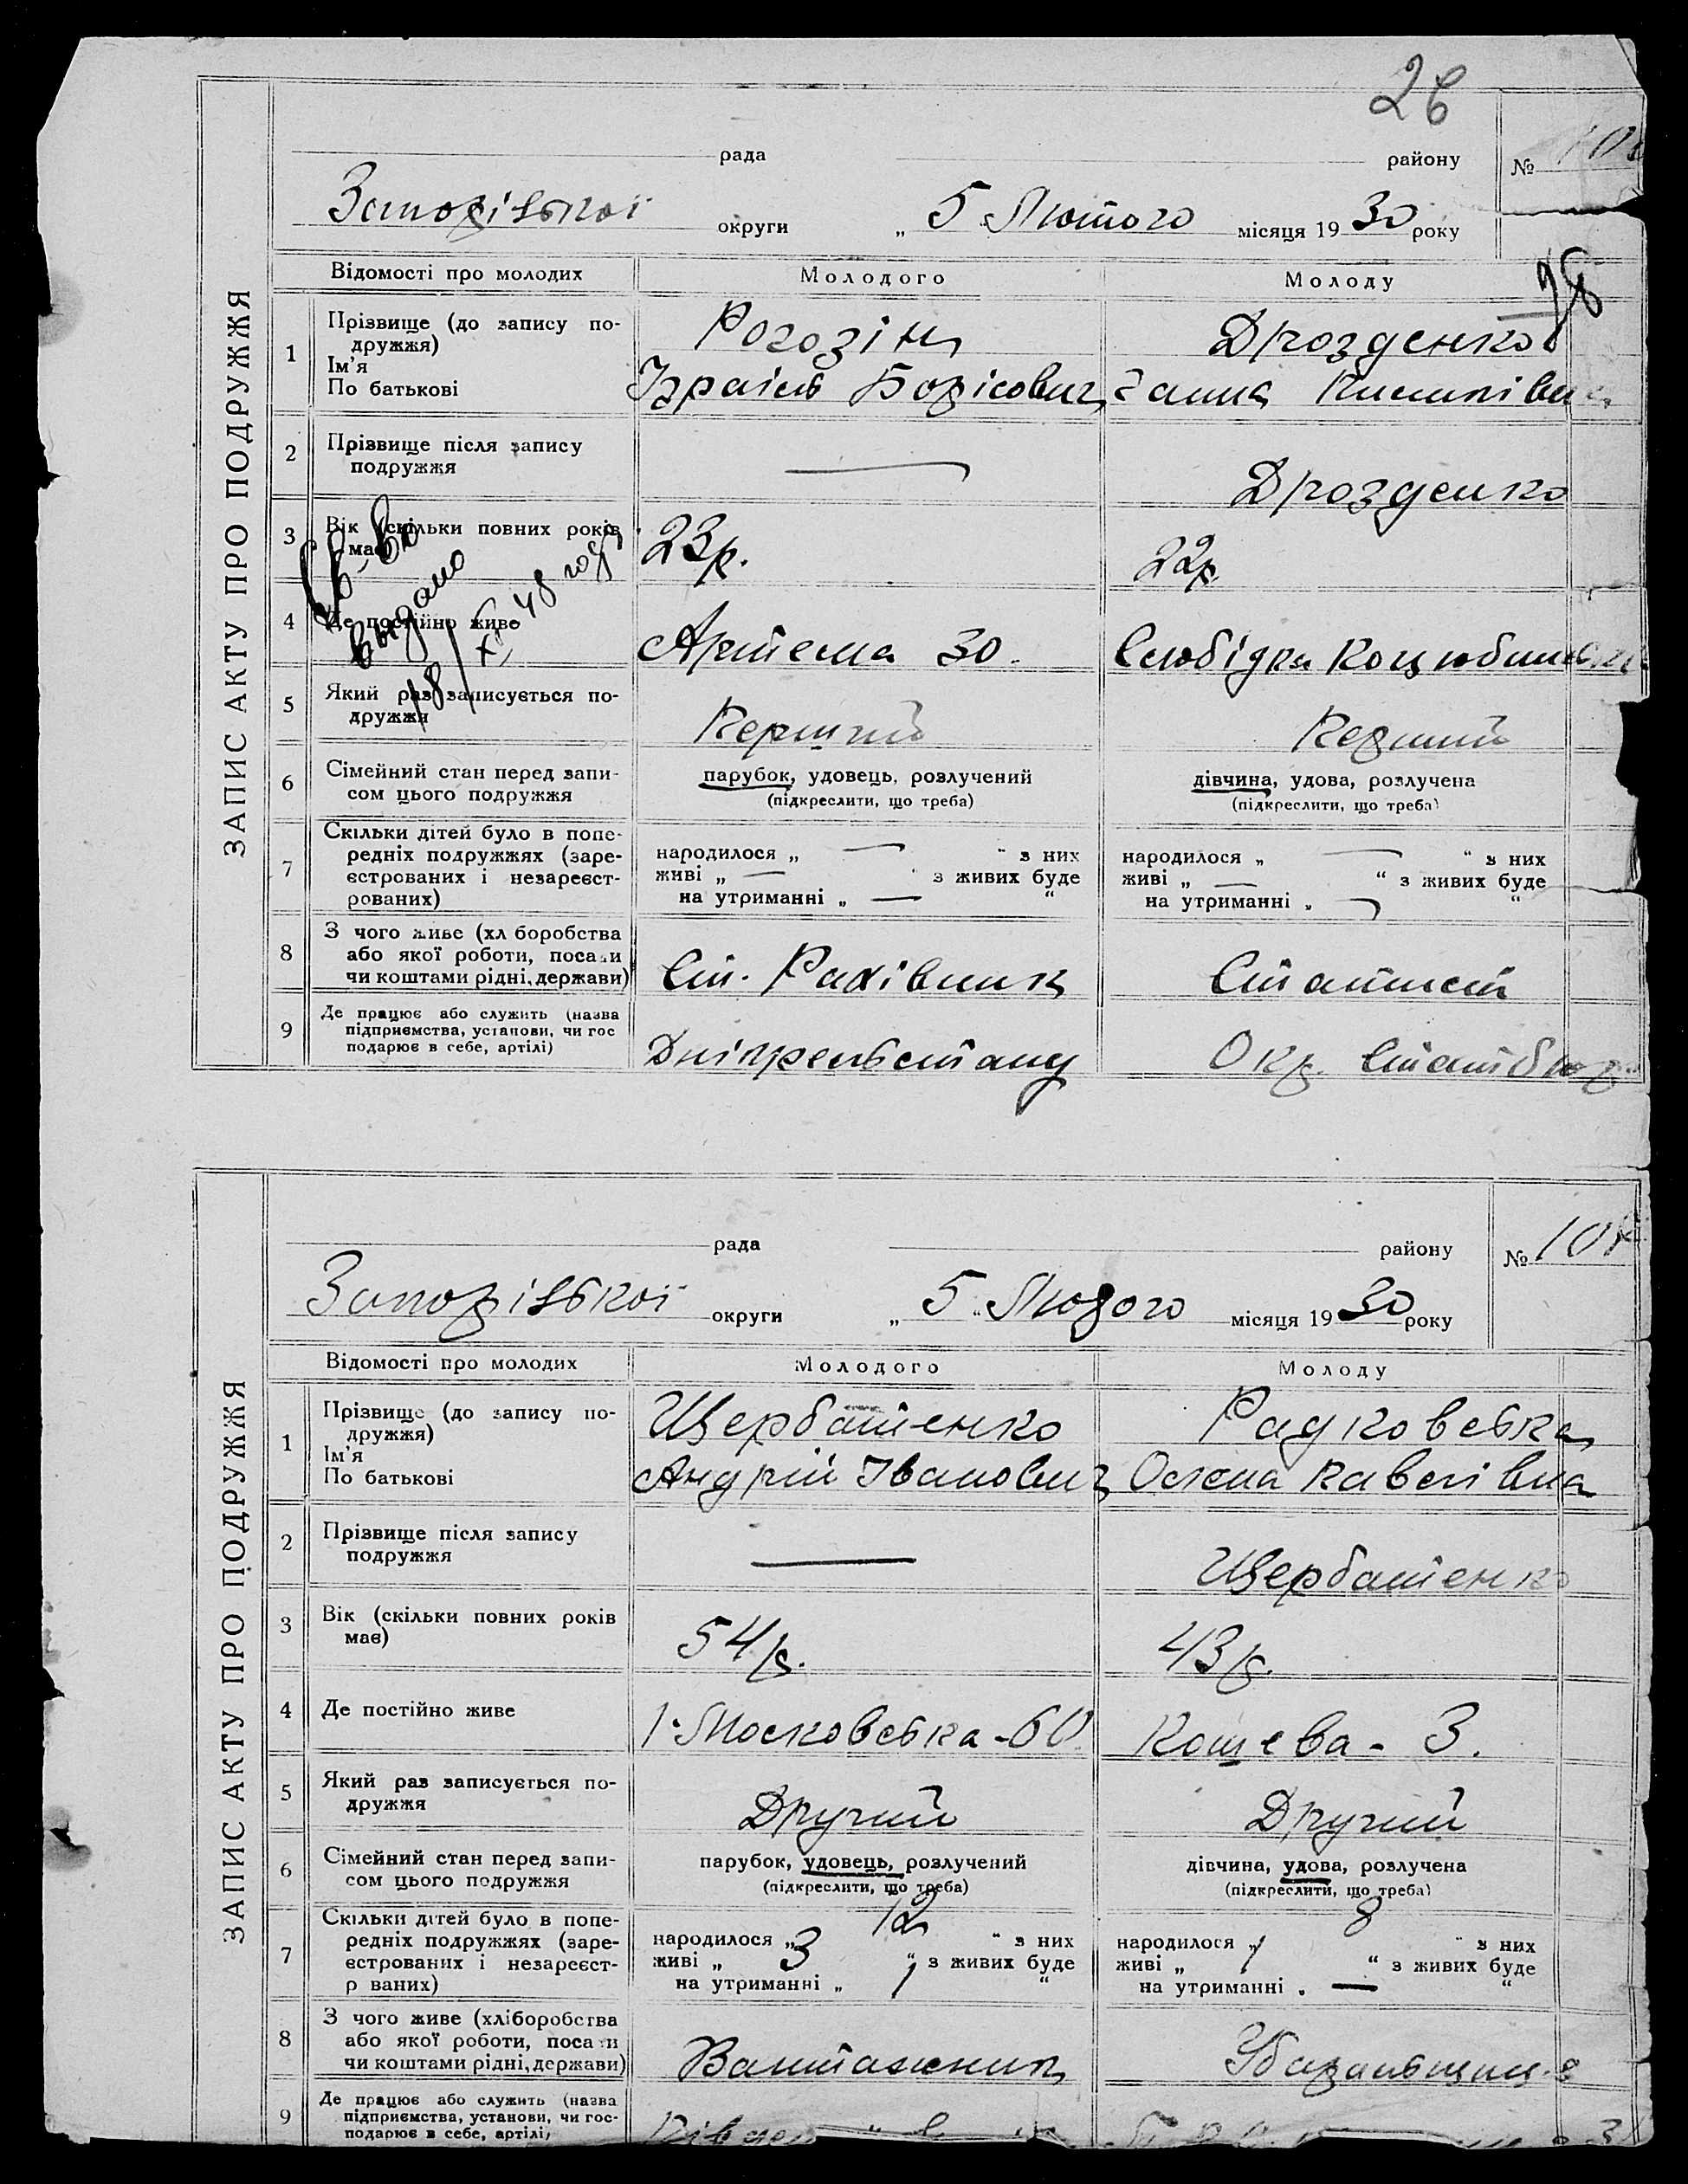 26
рада
району
№
Запорізької округи „ 5 " Лютого місяця 19 30 року
ЗАПИС АКТУ ПРО ПОДРУЖЖЯ
Відомості про молодих
Молодого
Молоду
78
1
Прізвище (до запису по-
дружжя)
Ім'я
По батькові
Рогозін
Ізраїль Борісович
Дрозденко
Ганна Пилипівна
2
Прізвище після запису
подружжя
—
Дрозденко
3
Вік (скільки повних років
має)
23р.
22р.
Св-во
выдано
18/XI 48 года
4
Де постійно живе
Артема 30.
Слобідка Коцюбинськ
5
Який раз записується по-
дружжя
Перший
Перший
6
Сімейний стан перед запи-
сом цього подружжя
парубок, удовець, розлучений
(підкреслити, що треба)
дівчина, удова, розлучена
(підкреслити, що треба)
7
Скільки дітей було в попе-
редніх подружжях (заре-
єстрованих і незареєст-
рованих)
народилося „ — " з них
живі „ — " з живих буде
на утриманні „ — "
народилося „ — " з них
живі „ — " з живих буде
на утриманні „ — "
8
З чого живе (хл боробства
або якої роботи, посади
чи коштами рідні, держави)
Ст. Рахівник
Статист
9
Де працює або служить (назва
підприємства, установи, чи гос
подарює в себе, артілі)
Дніпрельстану
Окр. Статбюр
рада
району
№
Запорізької округи „ 5 " Лютого місяця 19 30 року
ЗАПИС АКТУ ПРО ПОДРУЖЖЯ
Відомості про молодих
Молодого
Молоду
1
Прізвище (до запису по-
дружжя)
Ім'я
По батькові
Щербатенко
Андрій Іванович
Радковська
Олена Павлівна
2
Прізвище після запису
подружжя
—
Щербатенко
3
Вік (скільки повних років
має)
54р.
43р.
4
Де постійно живе
1·Московська - 60
Кошева - 3.
5
Який раз записується по-
дружжя
Другий
Другий
6
Сімейний стан перед запи-
сом цього подружжя
парубок, удовець, розлучений
(підкреслити, що треба)
дівчина, удова, розлучена
(підкреслити, що треба)
7
Скільки дітей було в попе-
редніх подружжях (заре-
єстрованих і незареєст-
р ваних)
народилося „ 12 " з них
живі „ 3 " з живих буде
на утриманні „ 1 "
народилося „ 8 " з них
живі „ 1 " з живих буде
на утриманні „ — "
8
З чого живе (хліборобства
або якої роботи, посади
чи коштами рідні, держави)
Вантажник
9
Де працює або служить (назва
підприємства, установи, чи гос-
подарює в себе, артілі)